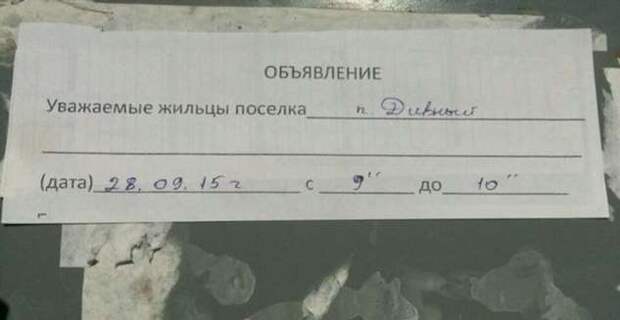 ОБЪЯВЛЕНИЕ
Уважаемые жильцы поселка п. Дивный
(дата) 28.09.15 г с 9" до 10"